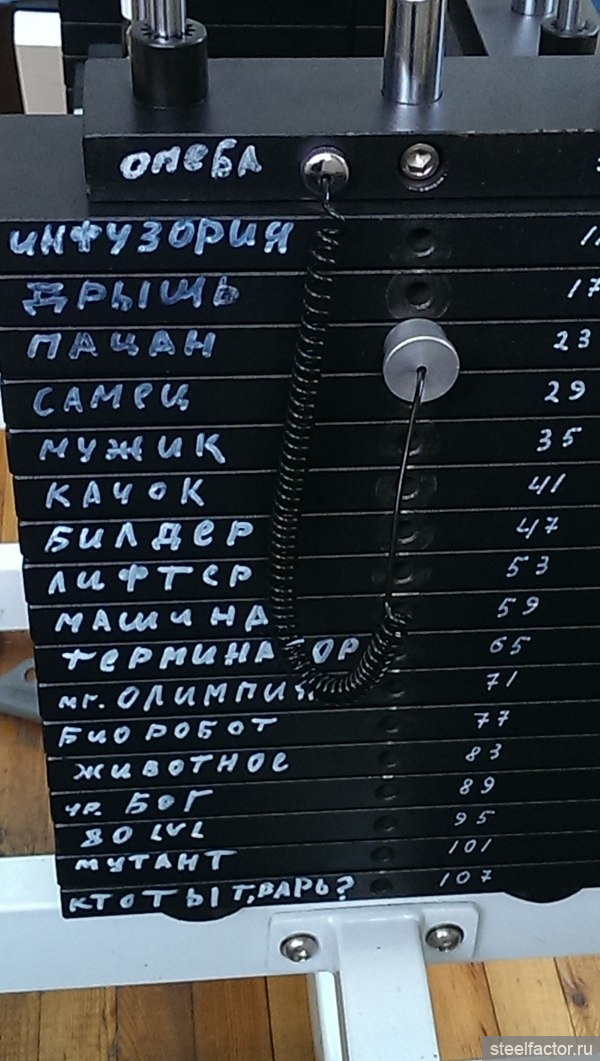 омеба
ИНФУЗОРИЯ 11
ДРЫЩЬ 17
ПАЦАН 23
САМЕЦ 29
МУЖИК 35
КАЧОК 41
БИЛДЕР 47
ЛИФТЕР 53
МАШИНА 59
ТЕРМИНАТОР 65
мг. ОЛИМПИЯ 71
БИОРОБОТ 77
ЖИВОТНОЕ 83
ур. БОГ 89
80 LVL 95
МУТАНТ 101
КТО ТЫ ТВАРЬ? 107
steelfactor.ru